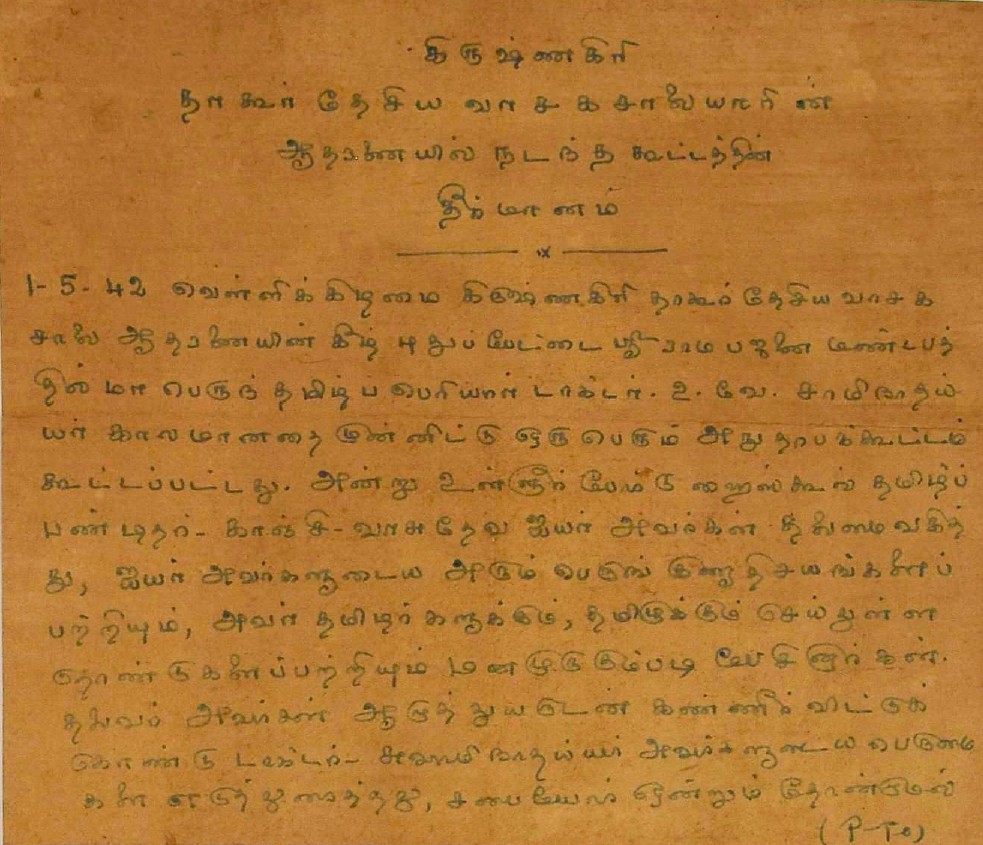 கிருஷ்ணகிரி
தாகூர் தேசிய வாசகசாலையாரின்
ஆதரணையில் நடந்த கூட்டத்தின்
தீர்மானம்
1-5-42 வெள்ளிக்கிழமை கிருஷ்ணகிரி தாகூர் தேசிய வாசக
சாலை ஆதரணையின் கீழ் புதுப்பேட்டை ஸ்ரீ ராம பஜனை மண்டபத்
தில் மா பெருந் தமிழ்ப் பெரியார் டாக்டர். உ. வே. சாமிநாதய்
யர் காலமானதை முன்னிட்டு ஒரு பெரும் அநுதாபக்கூட்டம்
கூட்டப்பட்டது. அன்று உள்ளூர் போர்டு ஹைஸ்கூல் தமிழ்ப்
பண்டிதர் - காஞ்சி - வாசுதேவ ஐயர் அவர்கள் தலைமை வகித்
து, ஐயர் அவர்களுடைய அரும் பெருங் குணாதிசயங்களைப்
பற்றியும், அவர் தமிழர்களுக்கும், தமிழுக்கும் செய்துள்ள
தொண்டுகளைப்பற்றியும் மனமுருகும்படி பேசினார்கள்.
தலைவர் அவர்கள் ஆறாத்துயருடன் கண்ணீர் விட்டுக்
கொண்டு டாக்டர் - சுவாமிநாதய்யர் அவர்களுடைய பெருமை
களை எடுத்துரைத்தது, சபையோர் ஒன்றும் தோன்றாமல்
(P-To)